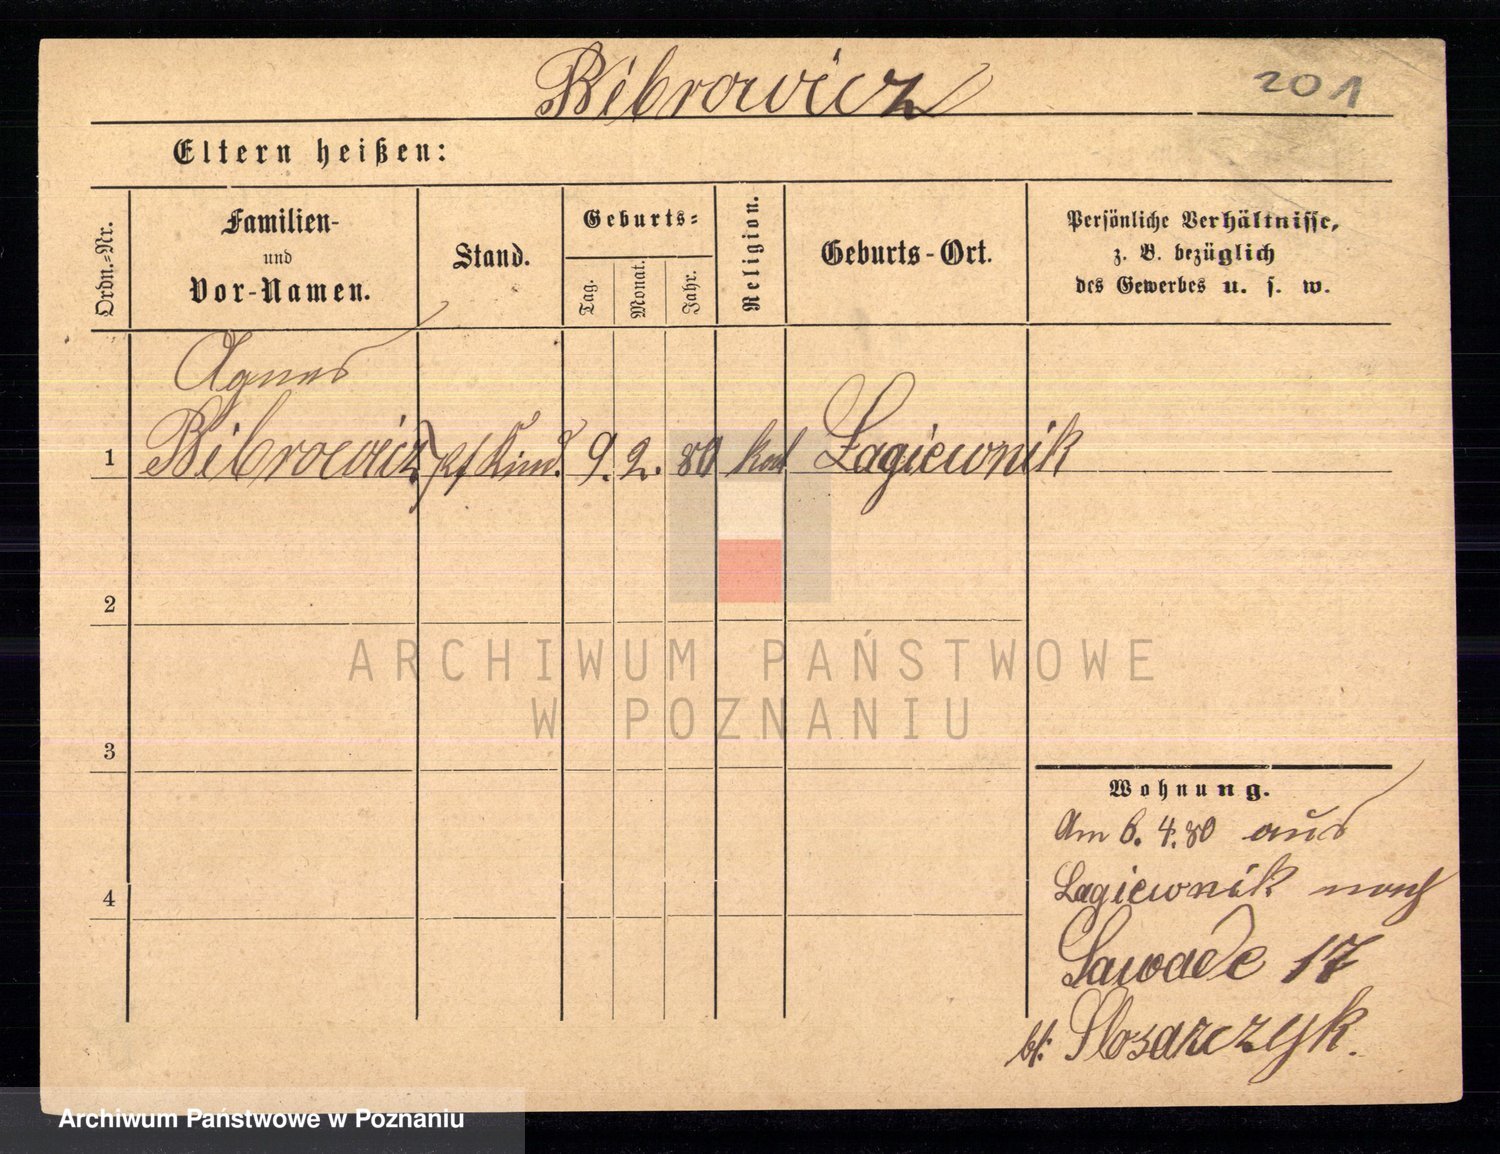 Bibrowicz
201
Eltern heißen:
Ordn.-Nr.
Familien-
und
Vor-Namen.
Stand.
Geburts-
Tag.
Monat.
Jahr.
Religion.
Geburts-Ort.
Persönliche Verhältnisse,
z. B. bezüglich
des Gewerbes u. s. w.
Agnes
1 Bibrowicz Kind. 9. 2. 80 kath Łagiewnik
2
3
4
ARCHIWUM PAŃSTWOWE
W POZNANIU
Wohnung.
Am 6. 4. 80 aus
Lagiewnik nach
Sawade 17
bei Slosarczyk.
Archiwum Państwowe w Poznaniu